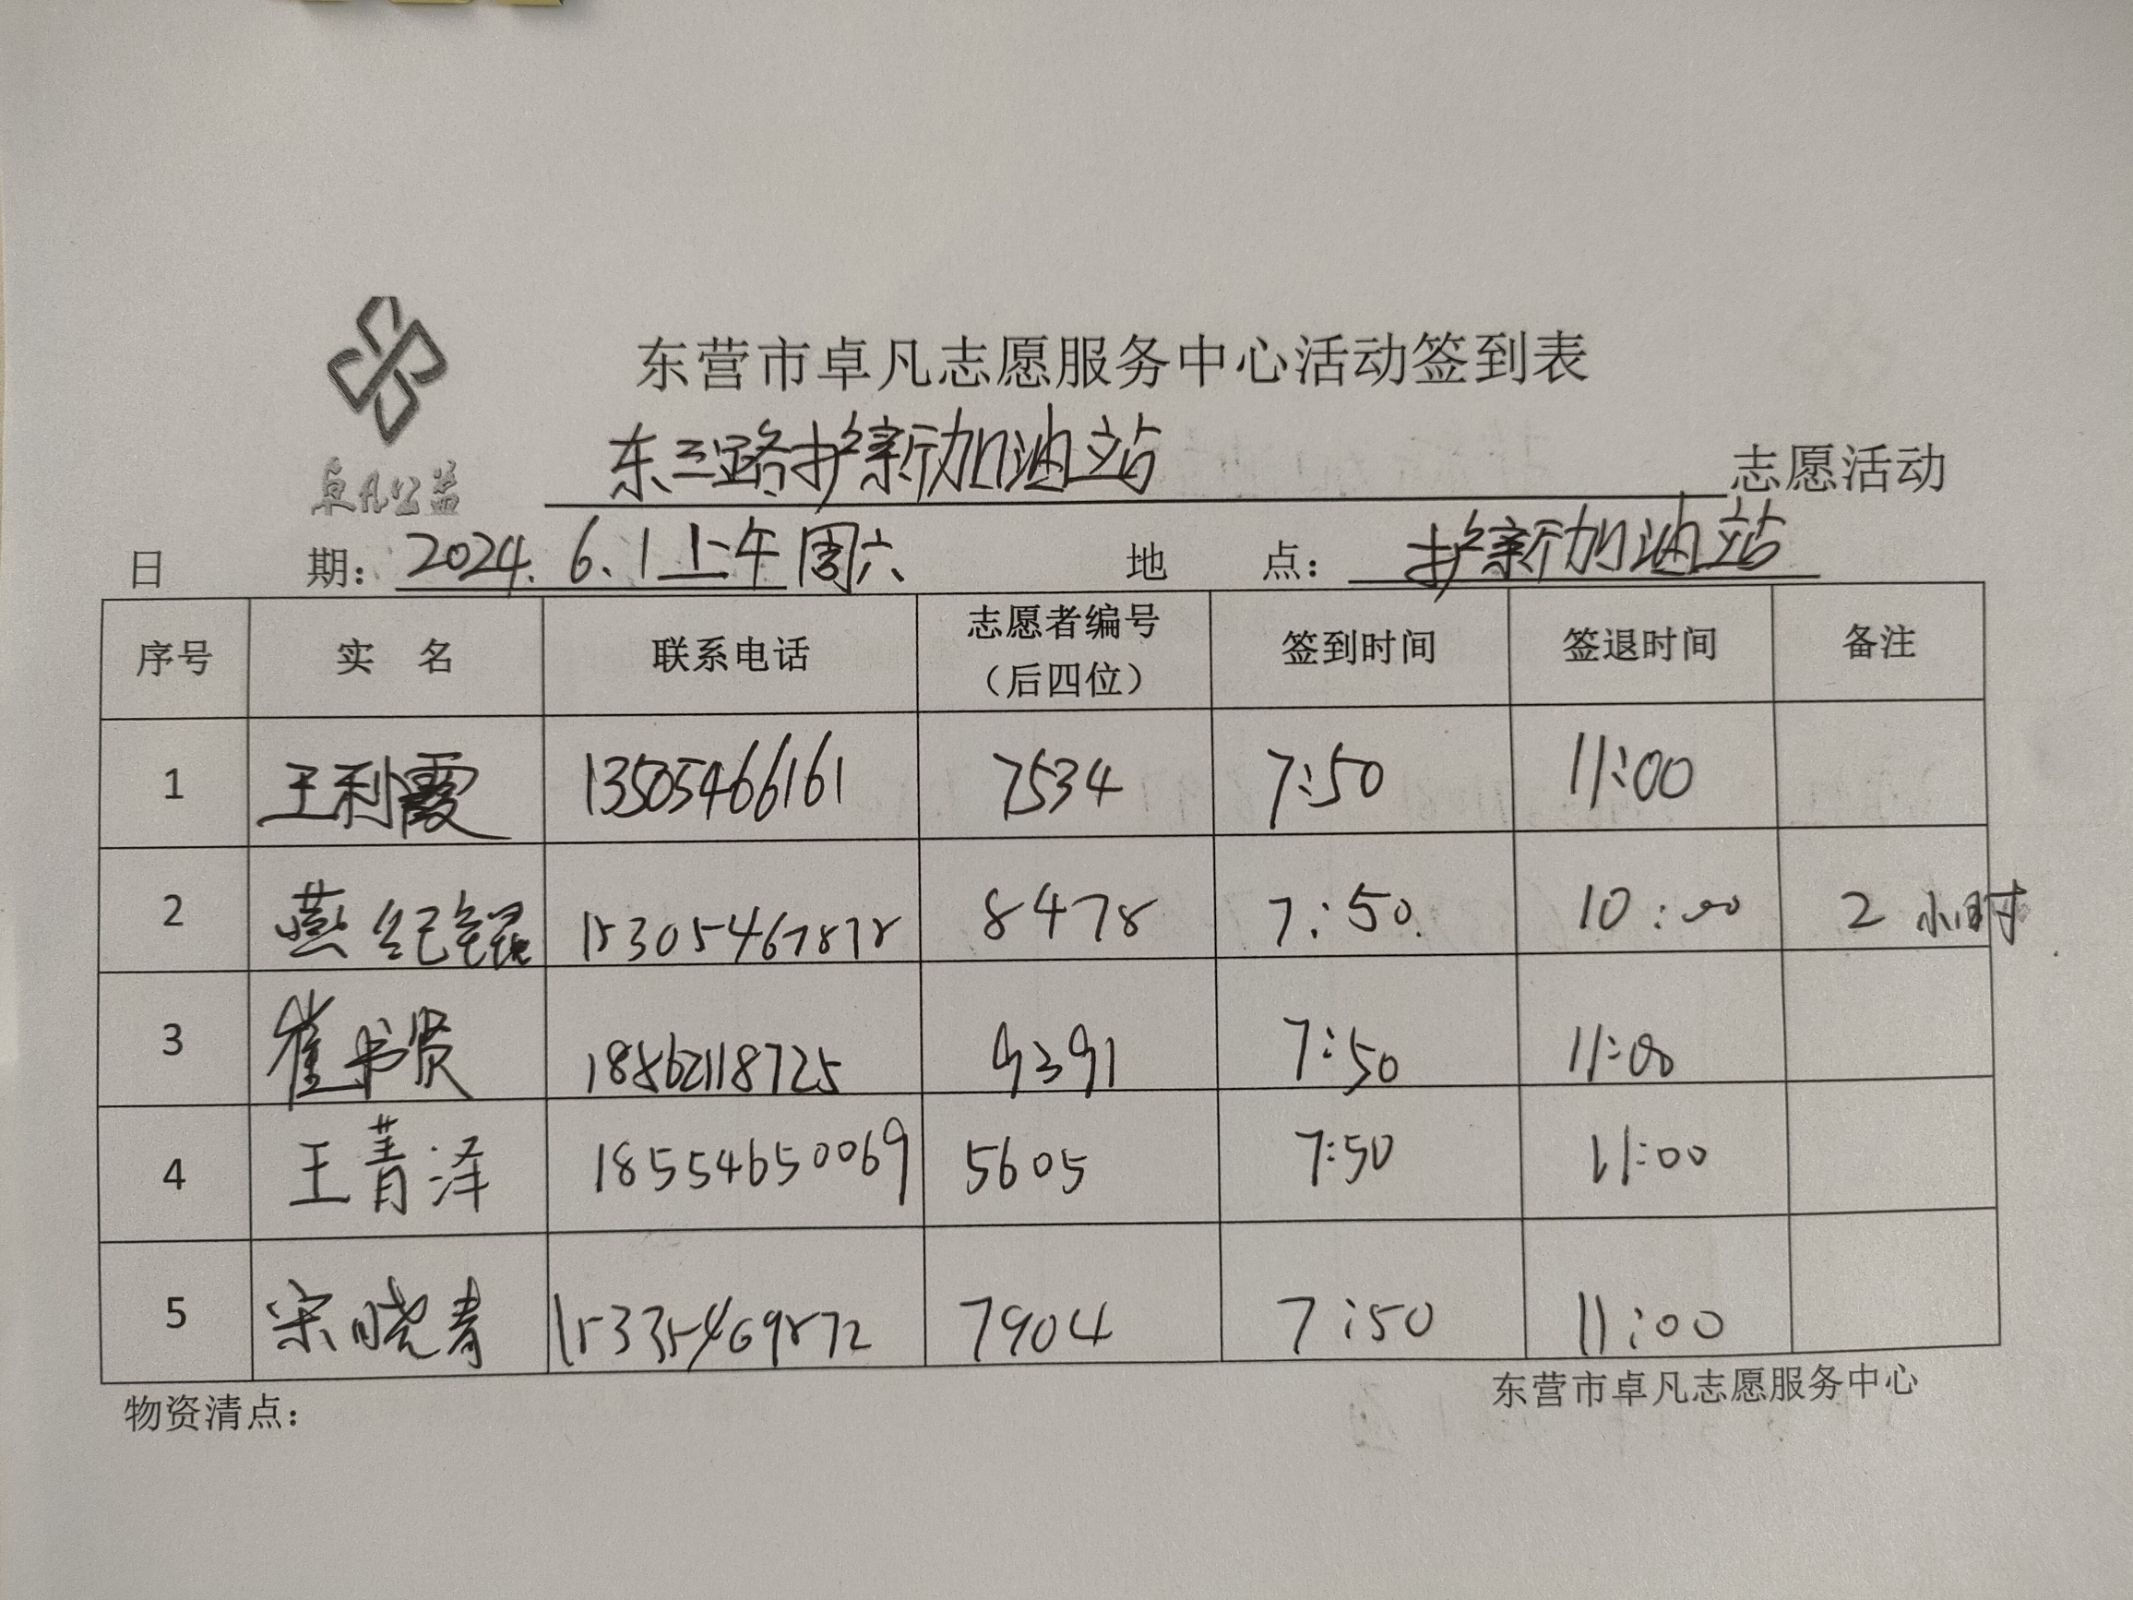 东营市卓凡志愿服务中心活动签到表
卓凡公益
东三路护新加油站 志愿活动
日 期: 2024.6.1上午周六 地 点: 护新加油站
序号 实 名 联系电话 志愿者编号（后四位） 签到时间 签退时间 备注
1 王利霞 13505466161 7534 7:50 11:00
2 燕纪锟 15305467878 8478 7:50 10:00 2小时
3 崔书贤 18862118725 9391 7:50 11:00
4 王菁泽 18554650069 5605 7:50 11:00
5 宋晓青 15335469872 7904 7:50 11:00
物资清点: 东营市卓凡志愿服务中心